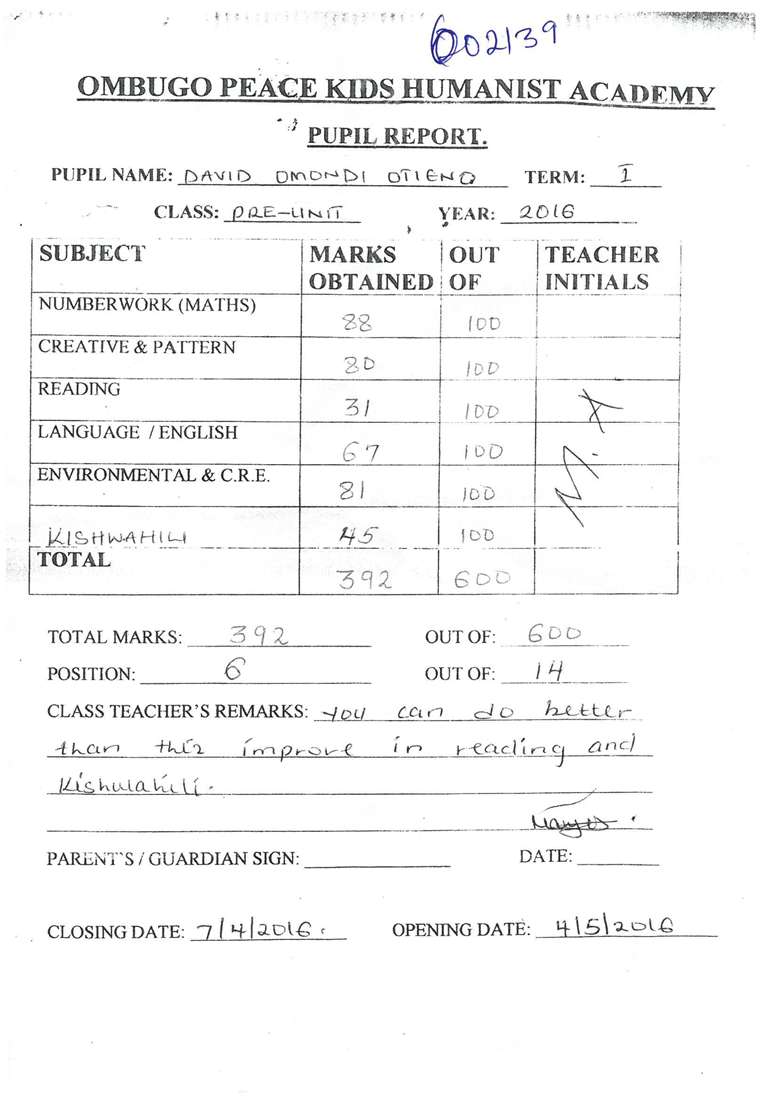 002139
OMBUGO PEACE KIDS HUMANIST ACADEMY
PUPIL REPORT.
PUPIL NAME: DAVID OMONDI OTIENO TERM: I
CLASS: PRE-UNIT YEAR: 2016
SUBJECT MARKS OBTAINED OUT OF TEACHER INITIALS
NUMBERWORK (MATHS) 88 100
CREATIVE & PATTERN 80 100
READING 31 100
LANGUAGE / ENGLISH 67 100
ENVIRONMENTAL & C.R.E. 81 100
KISHWAHILI 45 100
TOTAL 392 600
TOTAL MARKS: 392 OUT OF: 600
POSITION: 6 OUT OF: 14
CLASS TEACHER'S REMARKS: you can do better
than this improve in reading and
Kishwahili.
PARENT'S / GUARDIAN SIGN: DATE:
CLOSING DATE: 7/4/2016. OPENING DATE: 4/5/2016